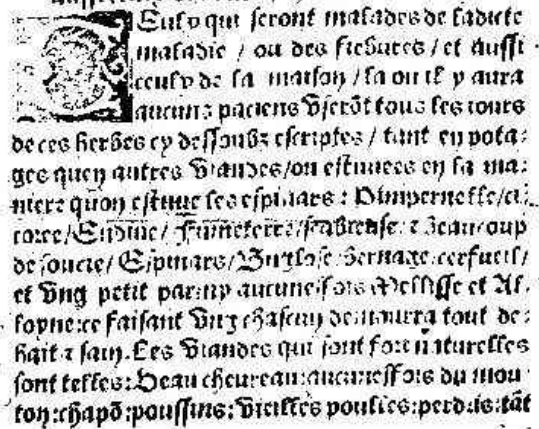 CEulx qui seront malades de ladicte
maladie / ou des fiebures / et aussi
ceulx de la maison / la ou il y aura
aucuns paciens vserõt tous les iours
de ces herbes cy dessoubz escriptes / tant en pota-
ges quen autres viandes / ou estuuees en la ma-
niere quon estuue les espinars : Pimpernelle / ci-
coree / Endiue / Fumeterre / scabieuse : z beaucoup
de soucie / Espinars / Buglose : bernage : cerfueil /
et vng petit parmy aucunesfois Mellisse et Al-
loyne : ce faisant vng chascun demourra tout de-
hait z sain. Les viandes qui sont fort naturelles
sont telles : Veau cheureau : aucunesfois du mou
ton : chapõ : poussins : vieilles poulles : perdris : tãt